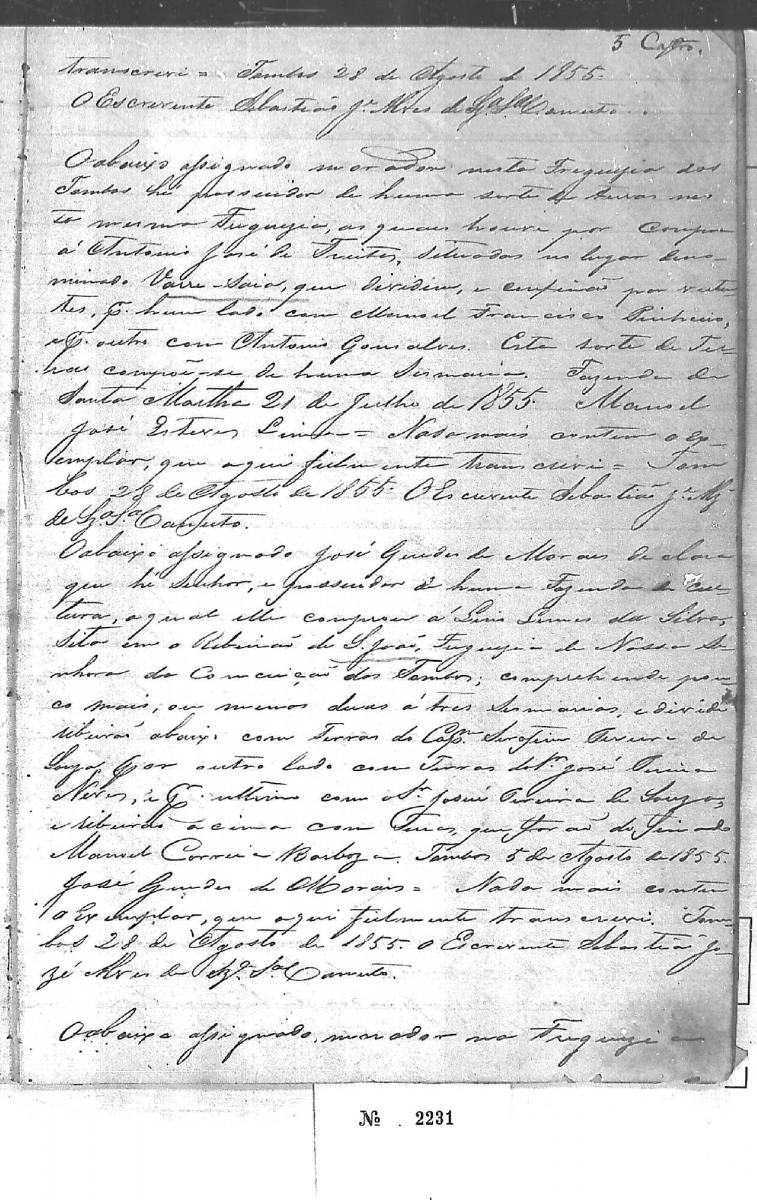 5 Castro.
transcrevi = Tombos 28 de Agosto de 1855.
O Escrevente Sebastião Je Alves de Canuto.
O abaixo assignado morador nesta Freguezia dos
Tombos hé possuidor de huma sorte de terras nes-
ta mesma Freguezia, as quaes houve por compra
á Antonio José de Freitas, situadas no lugar deno-
minado Varre-Saia, que dividem, e confinão por verten-
tes, p. hum lado com Manoel Francisco Pinheiro,
e p. outro com Antonio Gonsalves. Esta sorte de Ter-
ras compõe-se de huma Sesmaria. Fazenda de
Santa Martha 21 de Julho de 1855. Manoel
José Esteves Lima = Nada mais contem o ex-
emplar, que aqui fielmente transcrevi = Tom
bos 28 de Agosto de 1855. O Escrevente Sebastião Je Alz
de Canuto.
O abaixo assignado José Guedes de Moraes declara
que hé Senhor, e possuidor d huma Fazenda de cul-
tura, a qual elle comprou á Luis Lemes da Silva,
sita em o Ribeirão de S. João, Freguezia de Nossa Se-
nhora da Conceição dos Tombos; comprehende pou-
co mais, ou menos duas á tres Sesmarias, e divide
ribeirão abaixo com Terras do Capm Serafim Pereira de
Souza, por outro lado com Terras do Sr José Pereira
Neves, e p. ultimo com o Sr Josué Pereira de Souza,
e ribeirão acima com Terras, que forão do finado
Manoel Correia Barboza. Tombos 5 de Agosto de 1855.
José Guedes de Morais = Nada mais contem
o Exemplar, que aqui fielmente transcrevi. Tom-
bos 28 de Agosto de 1855. O Escrevente Sebastião Jo-
zé Alves de Canuto.
O abaixo assignado, morador na Freguezia
№ 2231